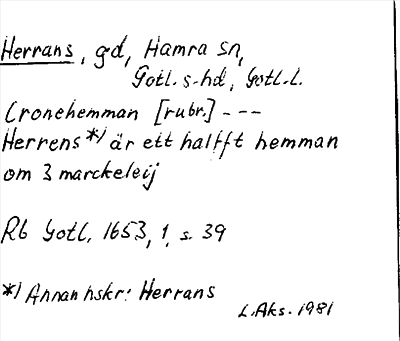 Herrans, gd, Hamra sn,
Gotl. s. hd, Gotl. l.
Cronehemman [rubr.] - - -
Herrens *) är ett halfft hemman
om 3 marckeleij
Rb Gotl. 1653, 1, s. 39
*) Annan hskr: Herrans
L. Aks. 1981